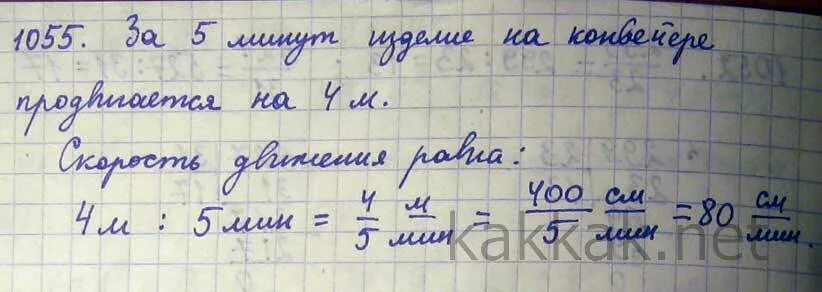 1055. За 5 минут изделие на конвейере
продвигается на 4 м.
Скорость движения равна:
4 м : 5 мин = 4/5 м/мин = 400/5 см/мин = 80 см/мин.
kakkak.net